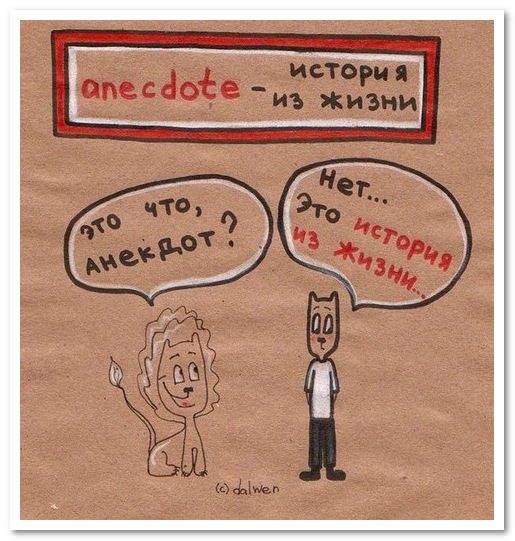 anecdote - история
из жизни
это что,
анекдот?
Нет...
Это история
из жизни...
(c) dalwen